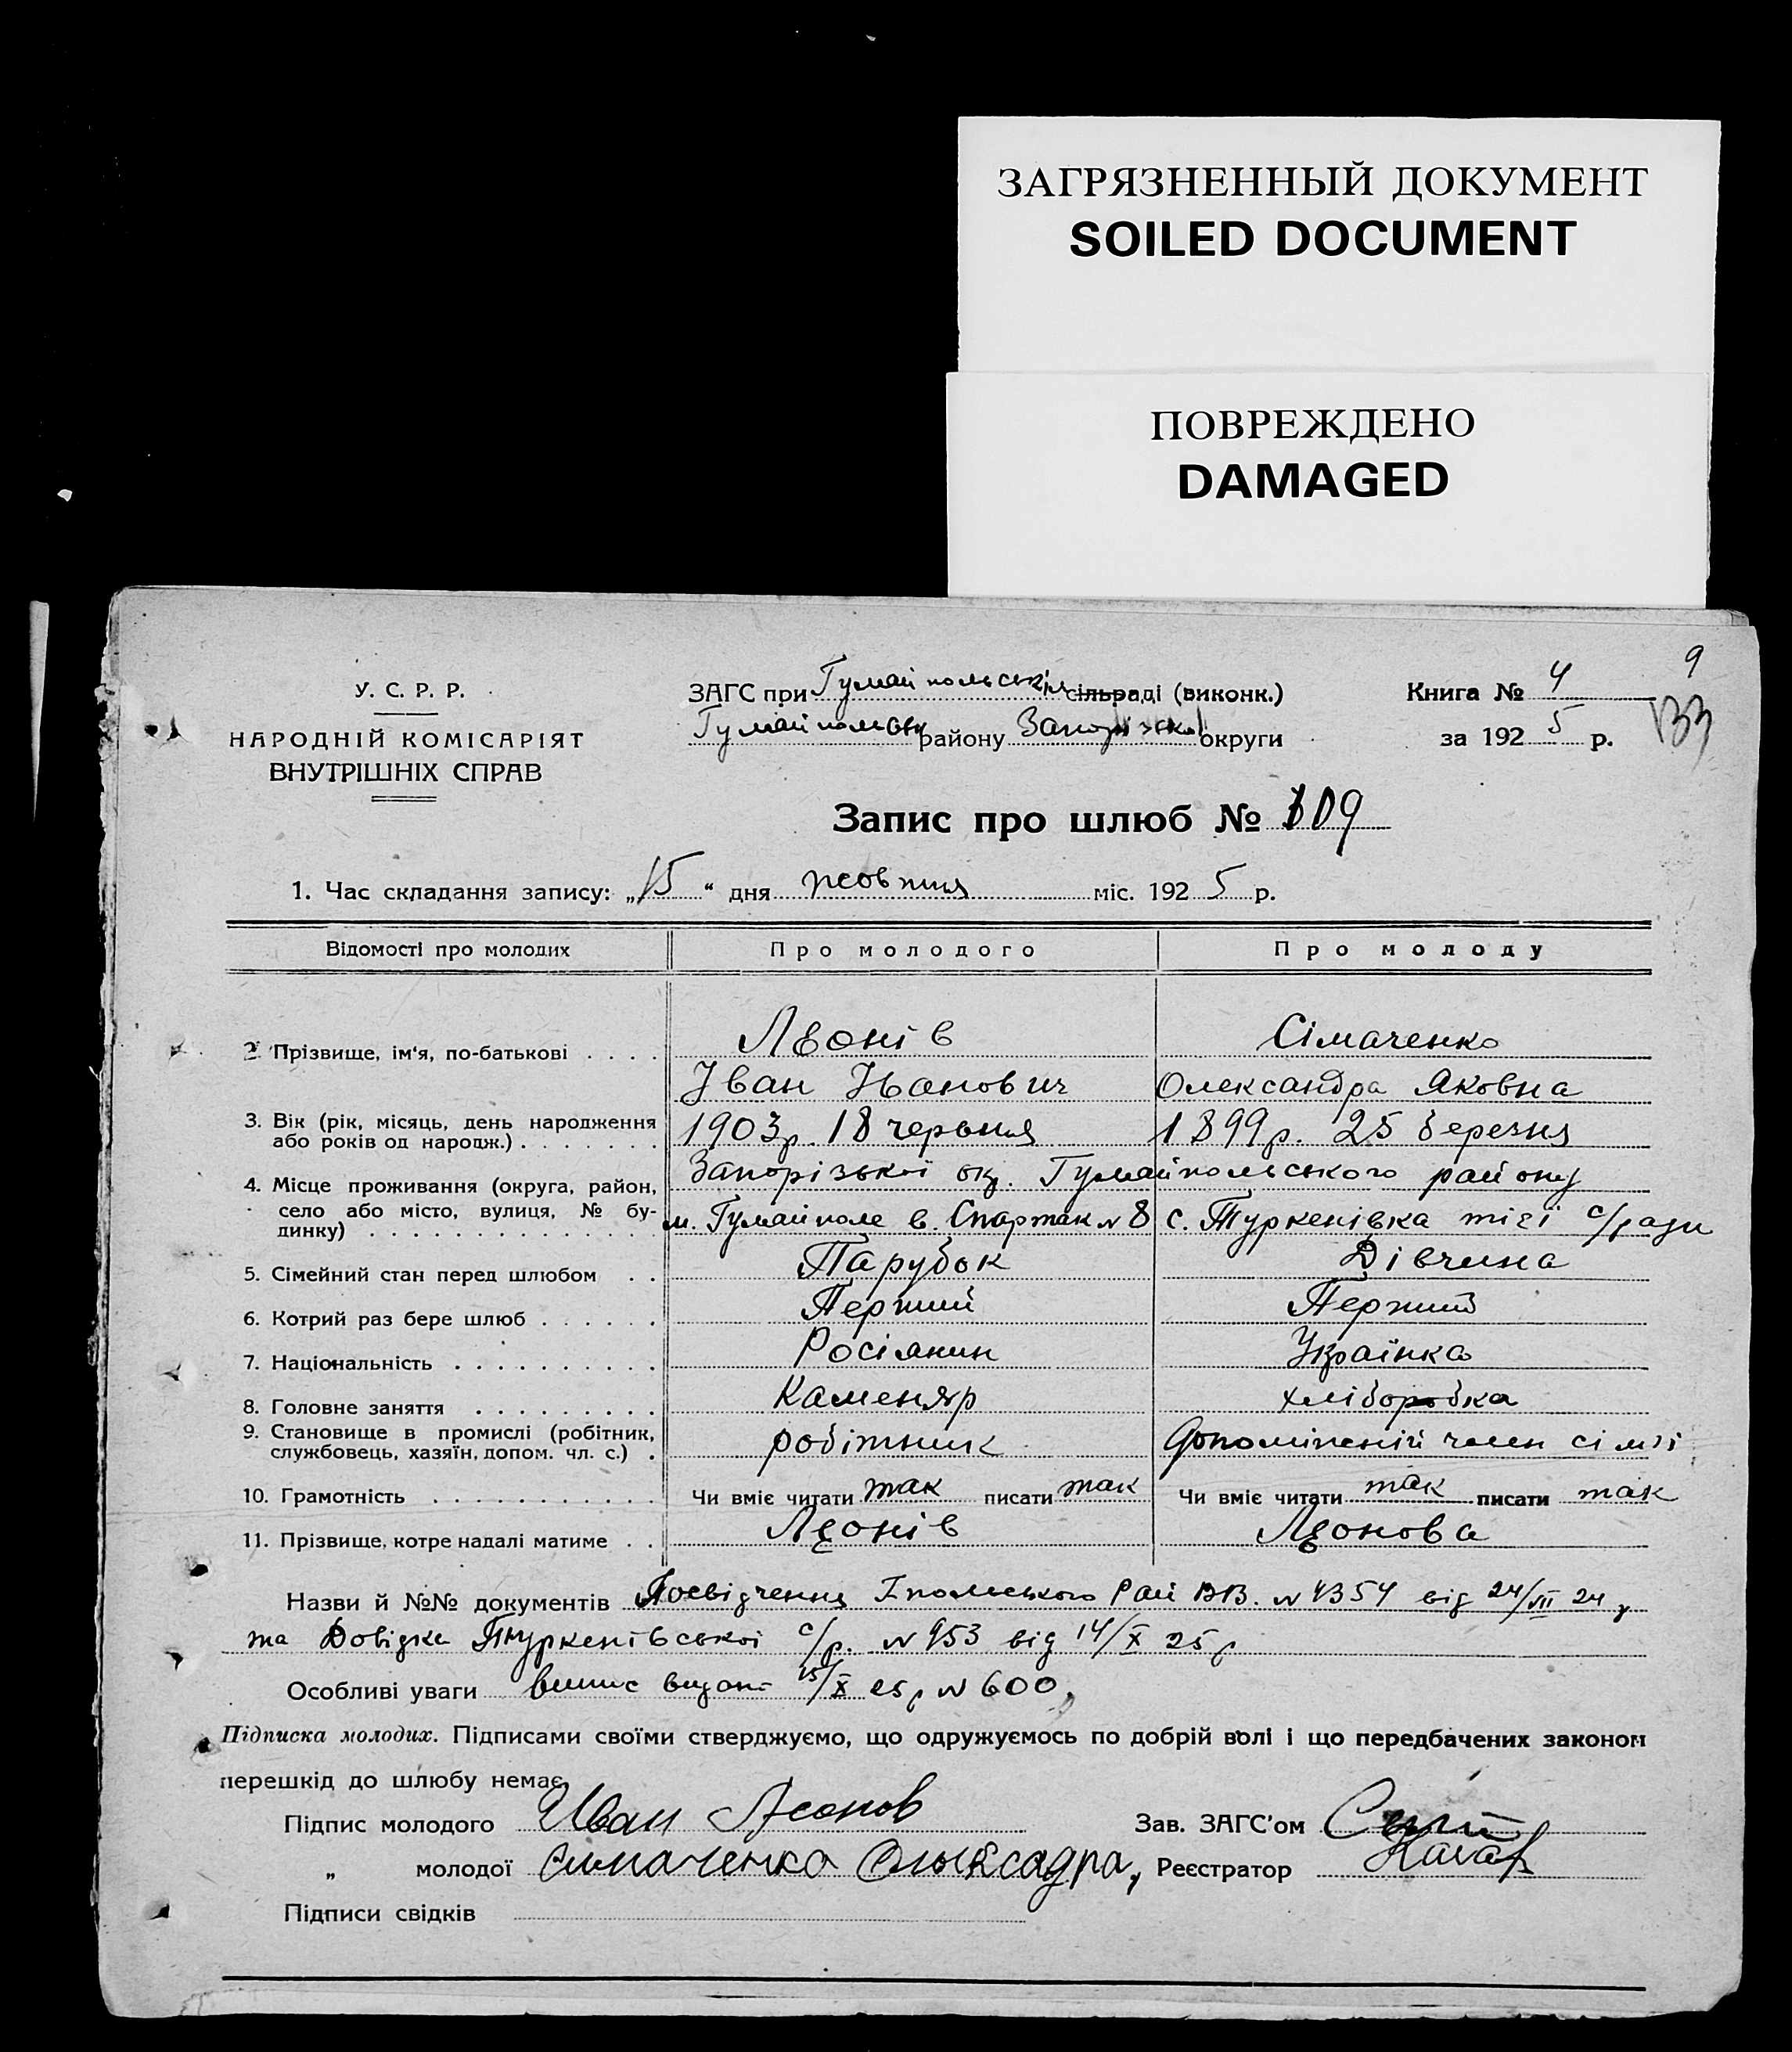 ЗАГРЯЗНЕННЫЙ ДОКУМЕНТ
SOILED DOCUMENT
ПОВРЕЖДЕНО
DAMAGED
9
133
У. С. Р. Р.
НАРОДНІЙ КОМІСАРІЯТ
ВНУТРІШНІХ СПРАВ
ЗАГС при Гуляйпольськім сільраді (виконк.)
Гуляйпольськ району Запорізької округи
Книга № 4
за 1925 р.
Запис про шлюб № 609
1. Час складання запису: „15“ дня жовтня міс. 1925 р.
Відомості про молодих Про молодого Про молоду
2. Прізвище, ім‘я, по-батькові Леонів Сімаченко
Іван Іванович Олександра Яковна
3. Вік (рік, місяць, день народження або років од народж.) 1903р. 18 червня 1899р. 25 березня
4. Місце проживання (округа, район, село або місто, вулиця, № будинку) Запорізької окр. Гуляйпольського району
м. Гуляйполе в. Спартак № 8 с. Туркенівка тієї с/ради
5. Сімейний стан перед шлюбом Парубок Дівчина
6. Котрий раз бере шлюб Перший Перший
7. Національність Росіянин Українка
8. Головне заняття Каменяр хліборобка
9. Становище в промислі (робітник, службовець, хазяїн, допом. чл. с.) робітник допоміжний член сім'ї
10. Грамотність Чи вміє читати так писати так Чи вміє читати так писати так
11. Прізвище, котре надалі матиме Леонів Леонова
Назви й №№ документів Посвідчення Гпольського Рай ВВ. № 4354 від 24/VII 24 р
та Довідка Туркенівської с/р. № 953 від 14/X 25 р
Особливі уваги випис видано 15/X 25 р № 600
Підписка молодих. Підписами своїми стверджуємо, що одружуємось по добрій волі і що передбачених законом
перешкід до шлюбу немає
Підпис молодого Иван Леонов Зав. ЗАГС'ом
„ молодої Симаченко Олександра, Реєстратор
Підписи свідків